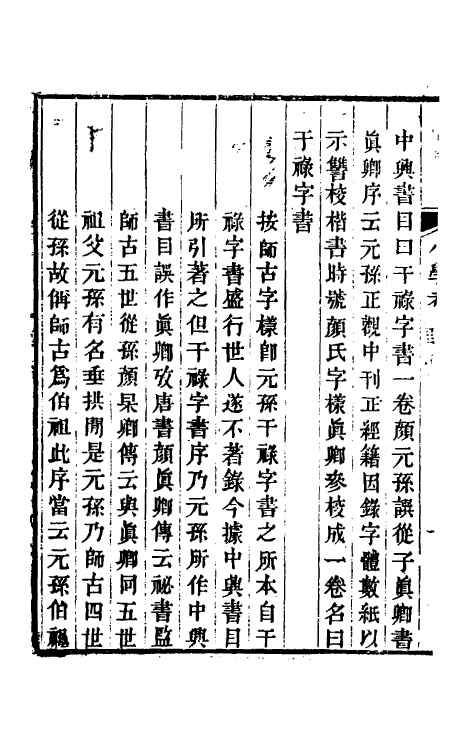 中興書目曰干祿字書一卷顏元孫譔從子眞卿書
眞卿序云元孫正觀中刊正經籍因錄字體數紙以
示讐校楷書時號顏氏字樣眞卿參校成一卷名曰
干祿字書
按師古字樣卽元孫干祿字書之所本自干
祿字書盛行世人遂不著錄今據中興書目
所引著之但干祿字書序乃元孫所作中興
書目誤作眞卿攷唐書顏眞卿傳云祕書監
師古五世從孫顏杲卿傳云與眞卿同五世
祖父元孫有名垂拱閒是元孫乃師古四世
從孫故偁師古爲伯祖此序當云元孫伯祖